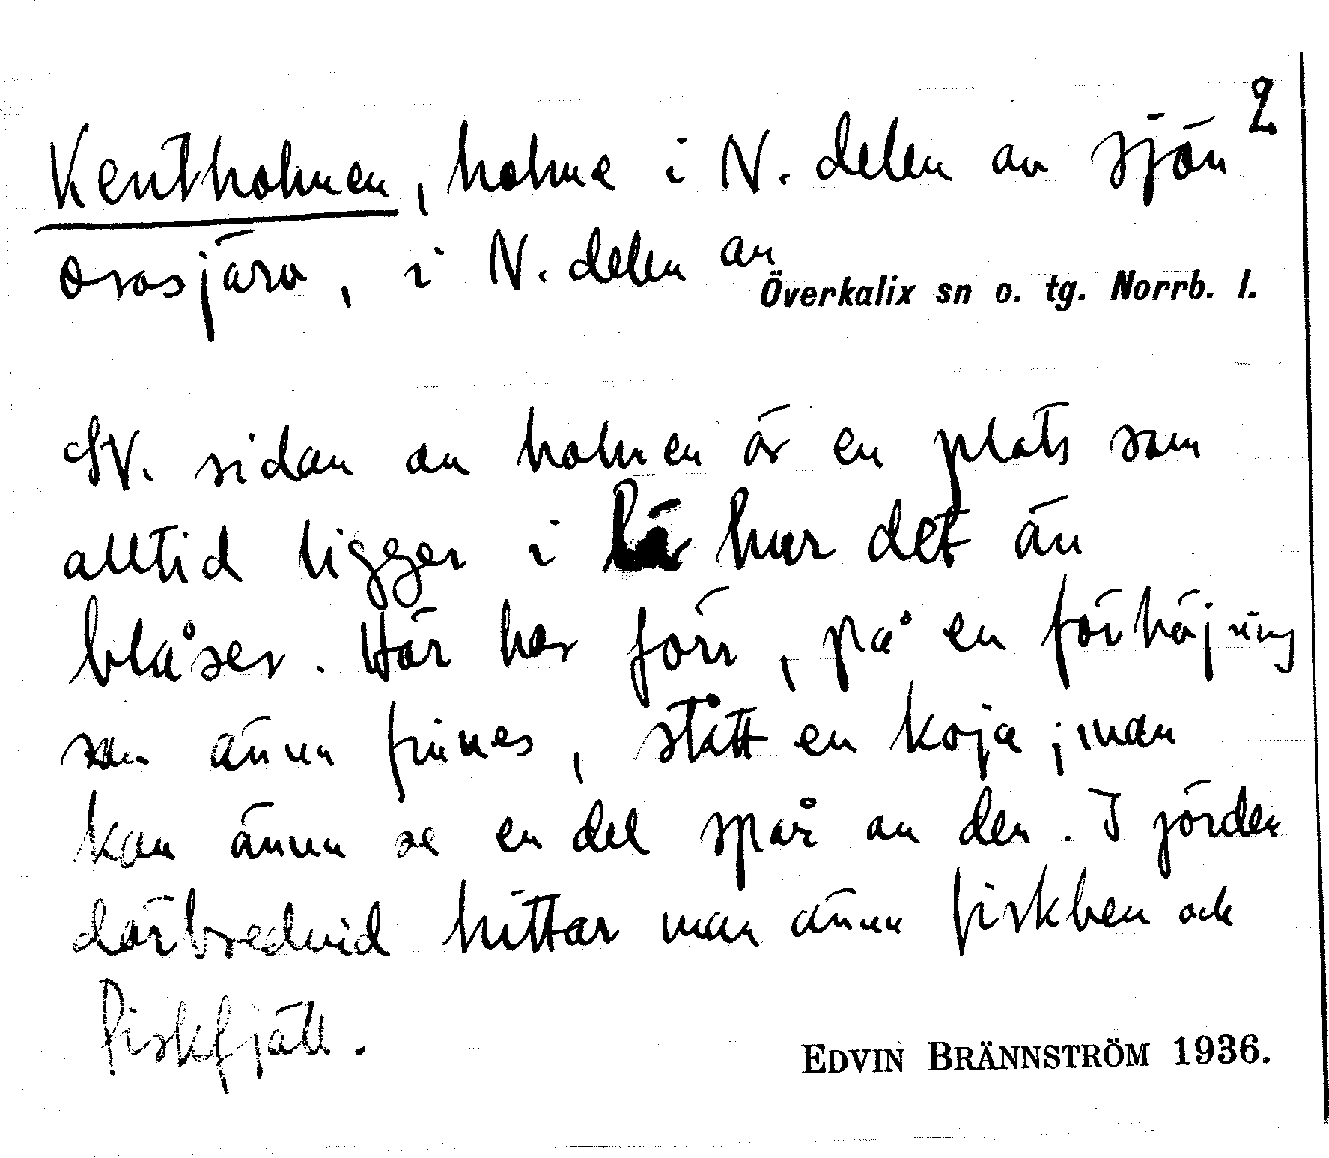 2
Kentholmen, holme i N. delen av sjön
Orasjärv, i N. delen av
Överkalix sn o. tg. Norrb. l.
SV. sidan av holmen är en plats som
alltid ligger i lä hur det än
blåser. Här har förr, på en förhöjning
som ännu finnes, stått en koja; man
kan ännu se en del spår av den. I jorden
därbredvid hittar man ännu fiskben och
fiskfjäll.
EDVIN BRÄNNSTRÖM 1936.